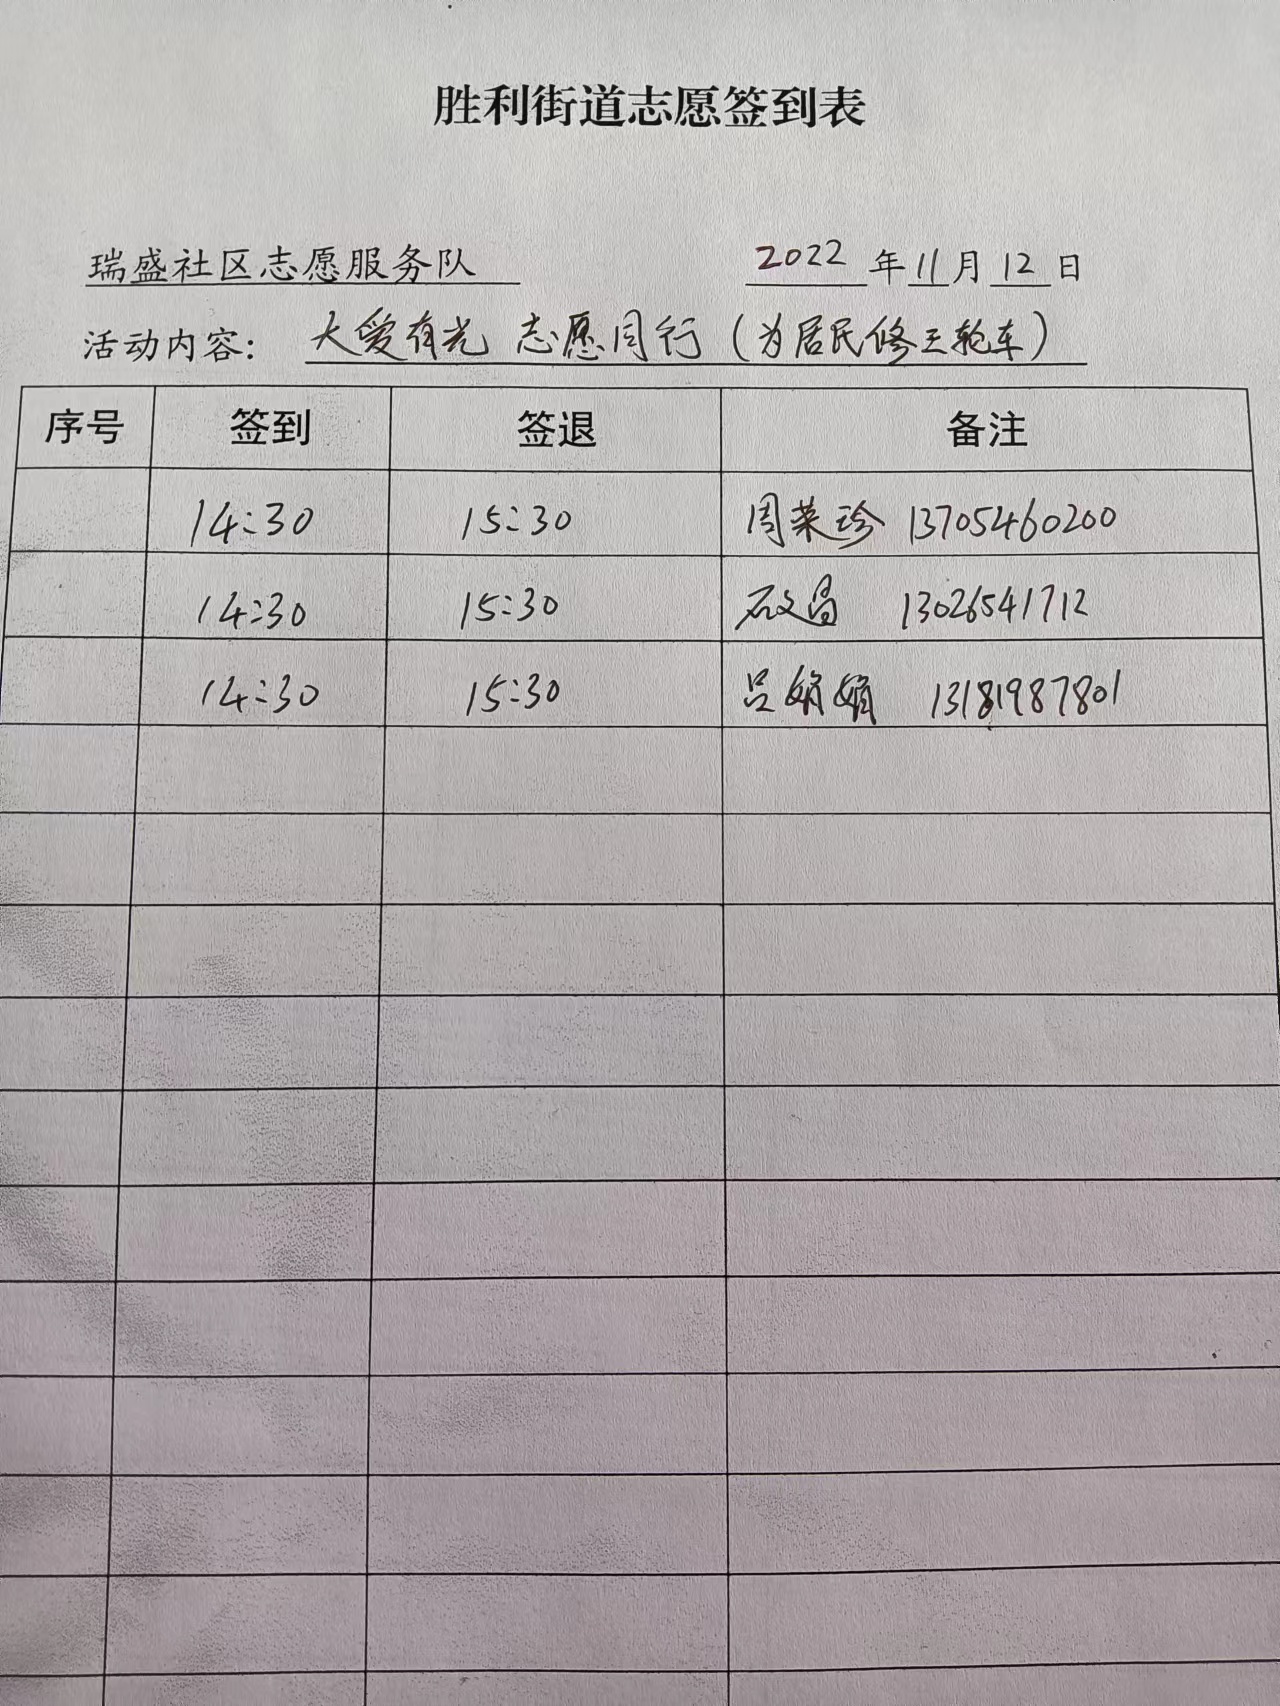 胜利街道志愿签到表
瑞盛社区志愿服务队 2022 年 11 月 12 日
活动内容: 大爱有光 志愿同行（为居民修三轮车）
序号 签到 签退 备注
14:30 15:30 周荣珍 13705460200
14:30 15:30 13026541712
14:30 15:30 吕娟娟 13181987801